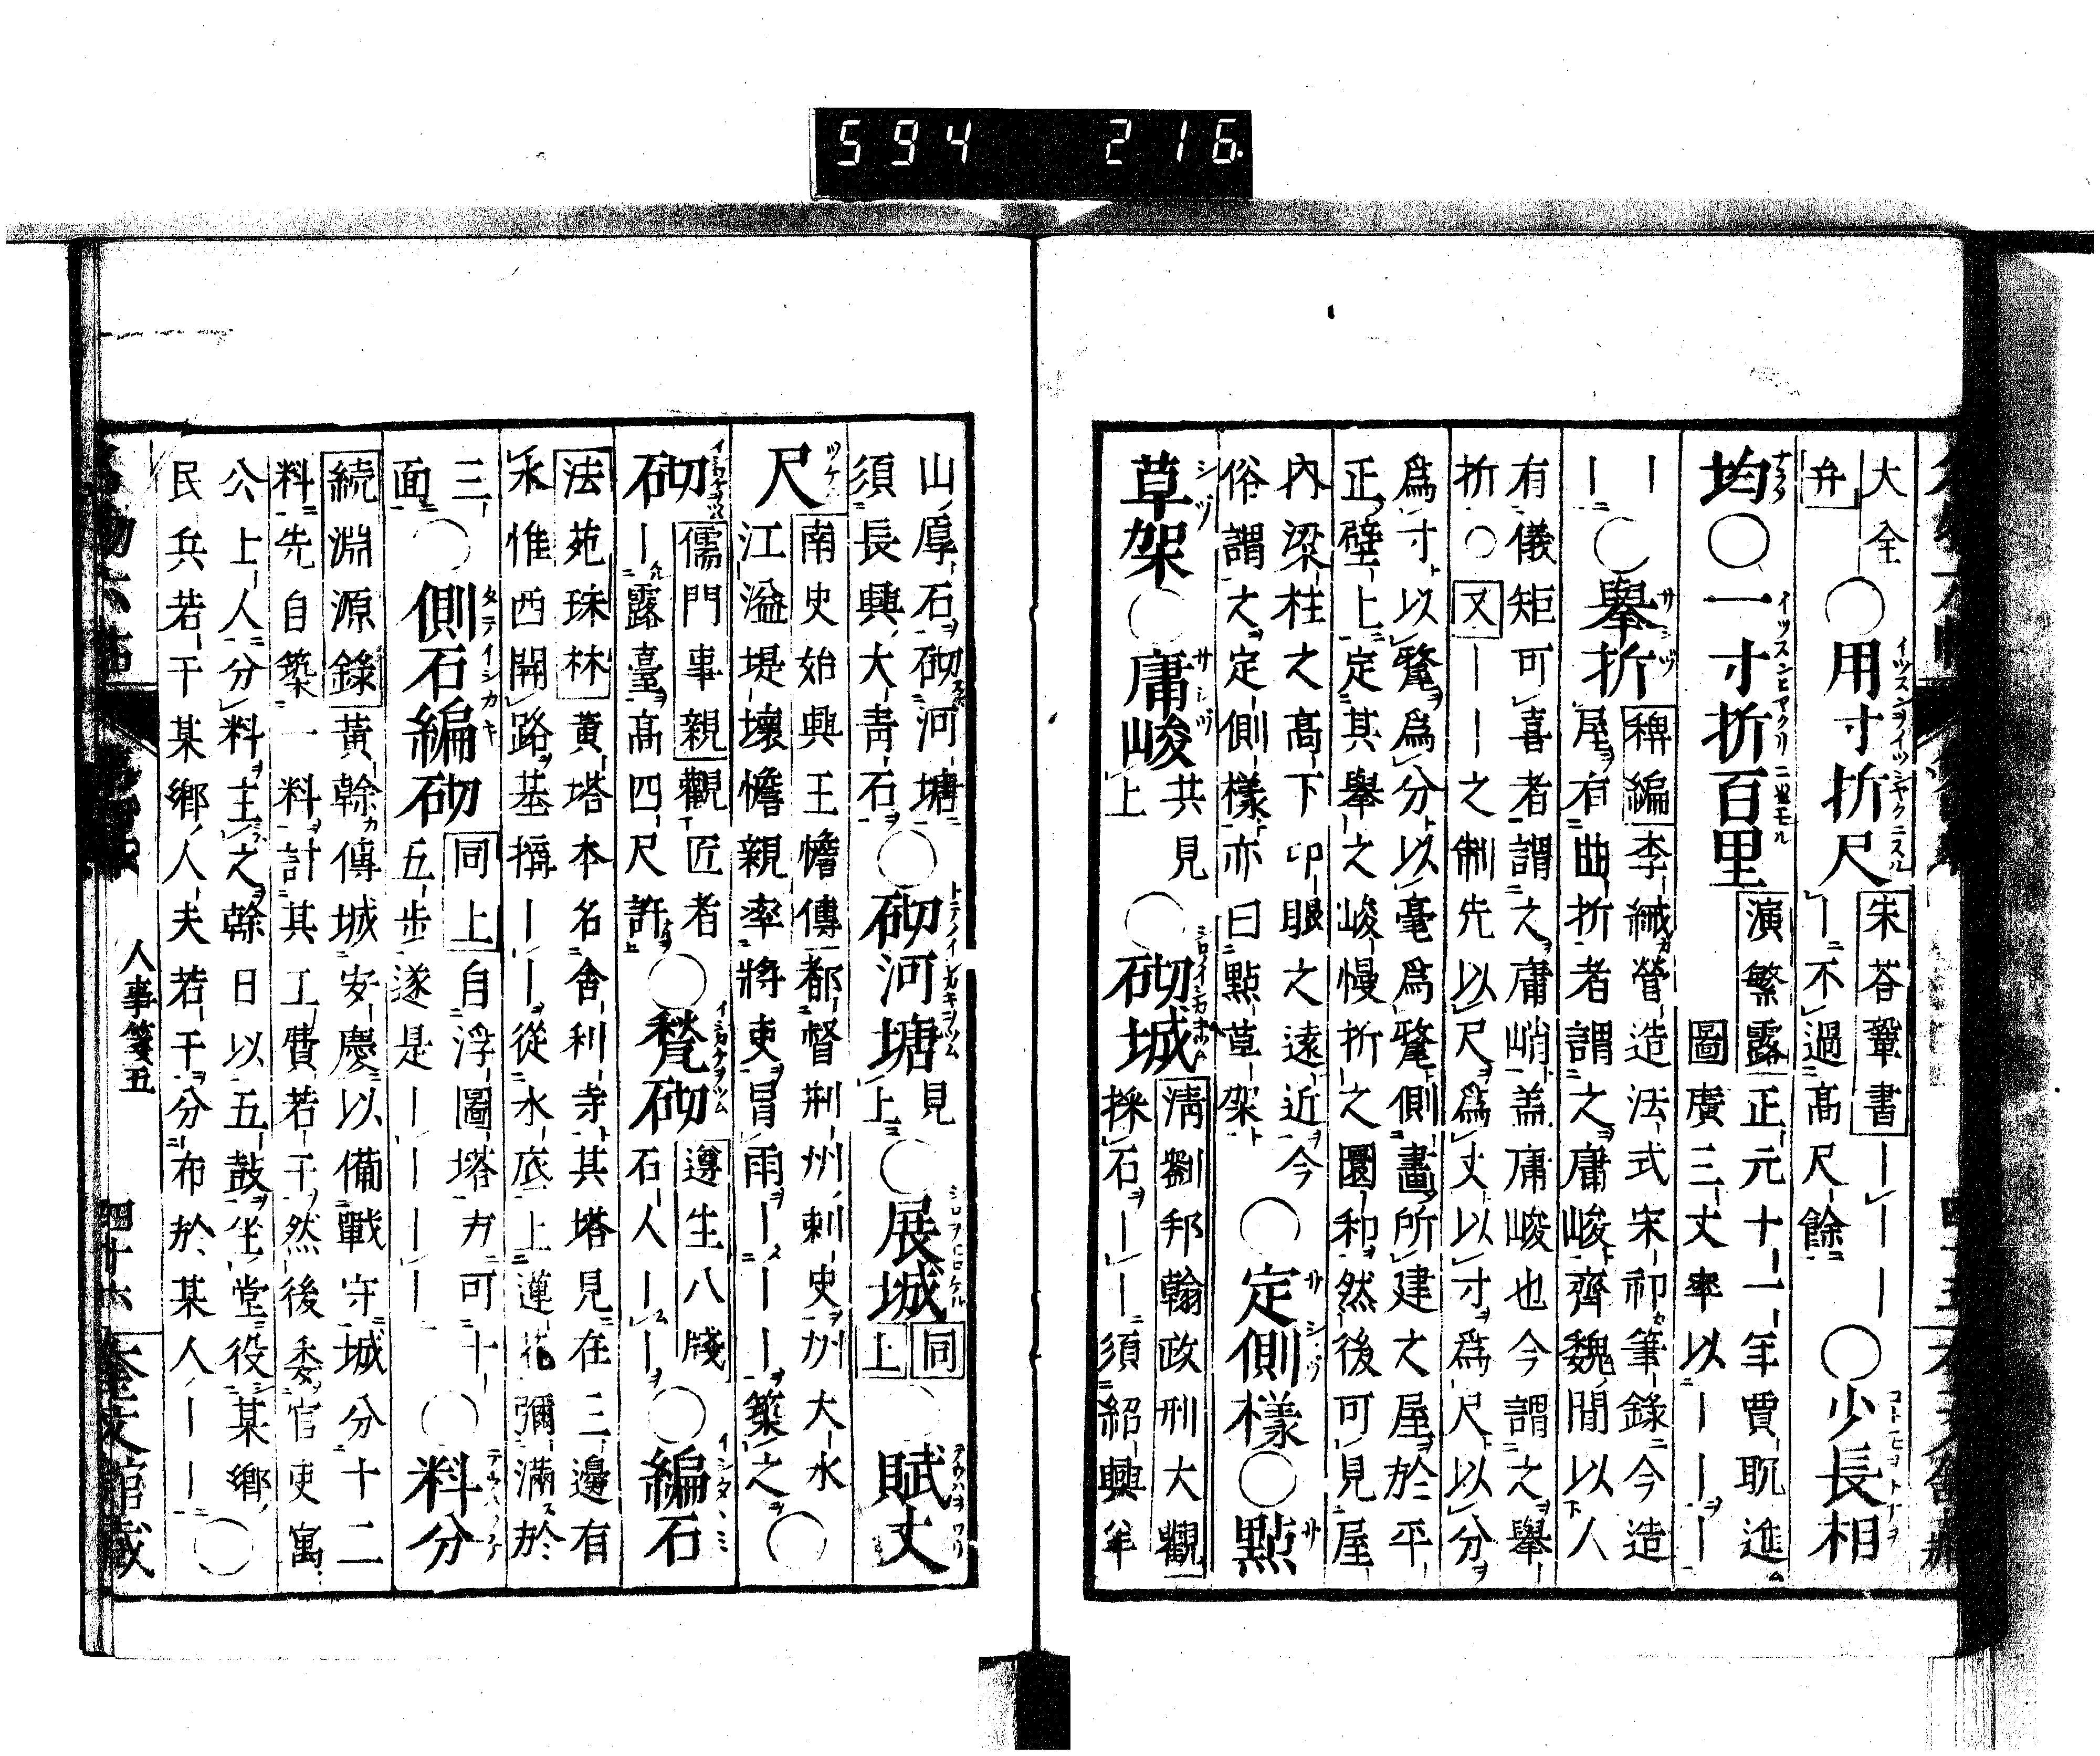 594 216
大全
弁
○用寸折尺
朱荅鞏書｜｜｜
｜不過高尺餘
○少長相
均○一寸折百里
演繁露正元十一年賈耽進
圖廣三丈率以｜｜｜
｜
｜
○舉折
稗編李緘營造法式宋祁筆錄今造
屋有曲折者謂之庸峻齊魏間以人
有儀矩可喜者謂之庸峭蓋庸峻也今謂之舉
折○又｜｜之制先以尺爲丈以寸爲尺以分
爲寸以釐爲分以毫爲釐側畫所建之屋於平
正壁上定其舉之峻慢折之圜和然後可見屋
內梁柱之高下卯眼之遠近今
俗謂之定側樣亦曰點草架
○定側樣○點
草架○庸峻
共見
上
○砌城
淸劉邦翰政刑大觀
採石｜｜須紹興年
山厚石砌河塘
須長興大靑石
○砌河塘
見
上
○展城
同
上
○賦丈
尺
南史始興王憺傳都督荆州刺史州大水
江溢堤壞憺親率將吏冒雨｜｜｜築之
○
砌
儒門事親觀匠者
｜露臺高四尺許
○甃砌
遵生八牋
石人｜｜
○編石
法苑珠林黄塔本名舍利寺其塔見在三邊有
永惟西開路基搆｜｜從水底上蓮花彌滿於
三
面
○側石編砌
同上自浮圖塔方可十
五步遂是｜｜｜｜
○料分
続淵源錄黃榦傳城安慶以備戰守城分十二
料先自築一料計其工費若干然後委官吏寓
公上人分料主之榦日以五鼓坐堂役某鄉
民兵若干某鄉人夫若干分布於某人｜｜
○
人事箋五
四十六
奎文館蔵